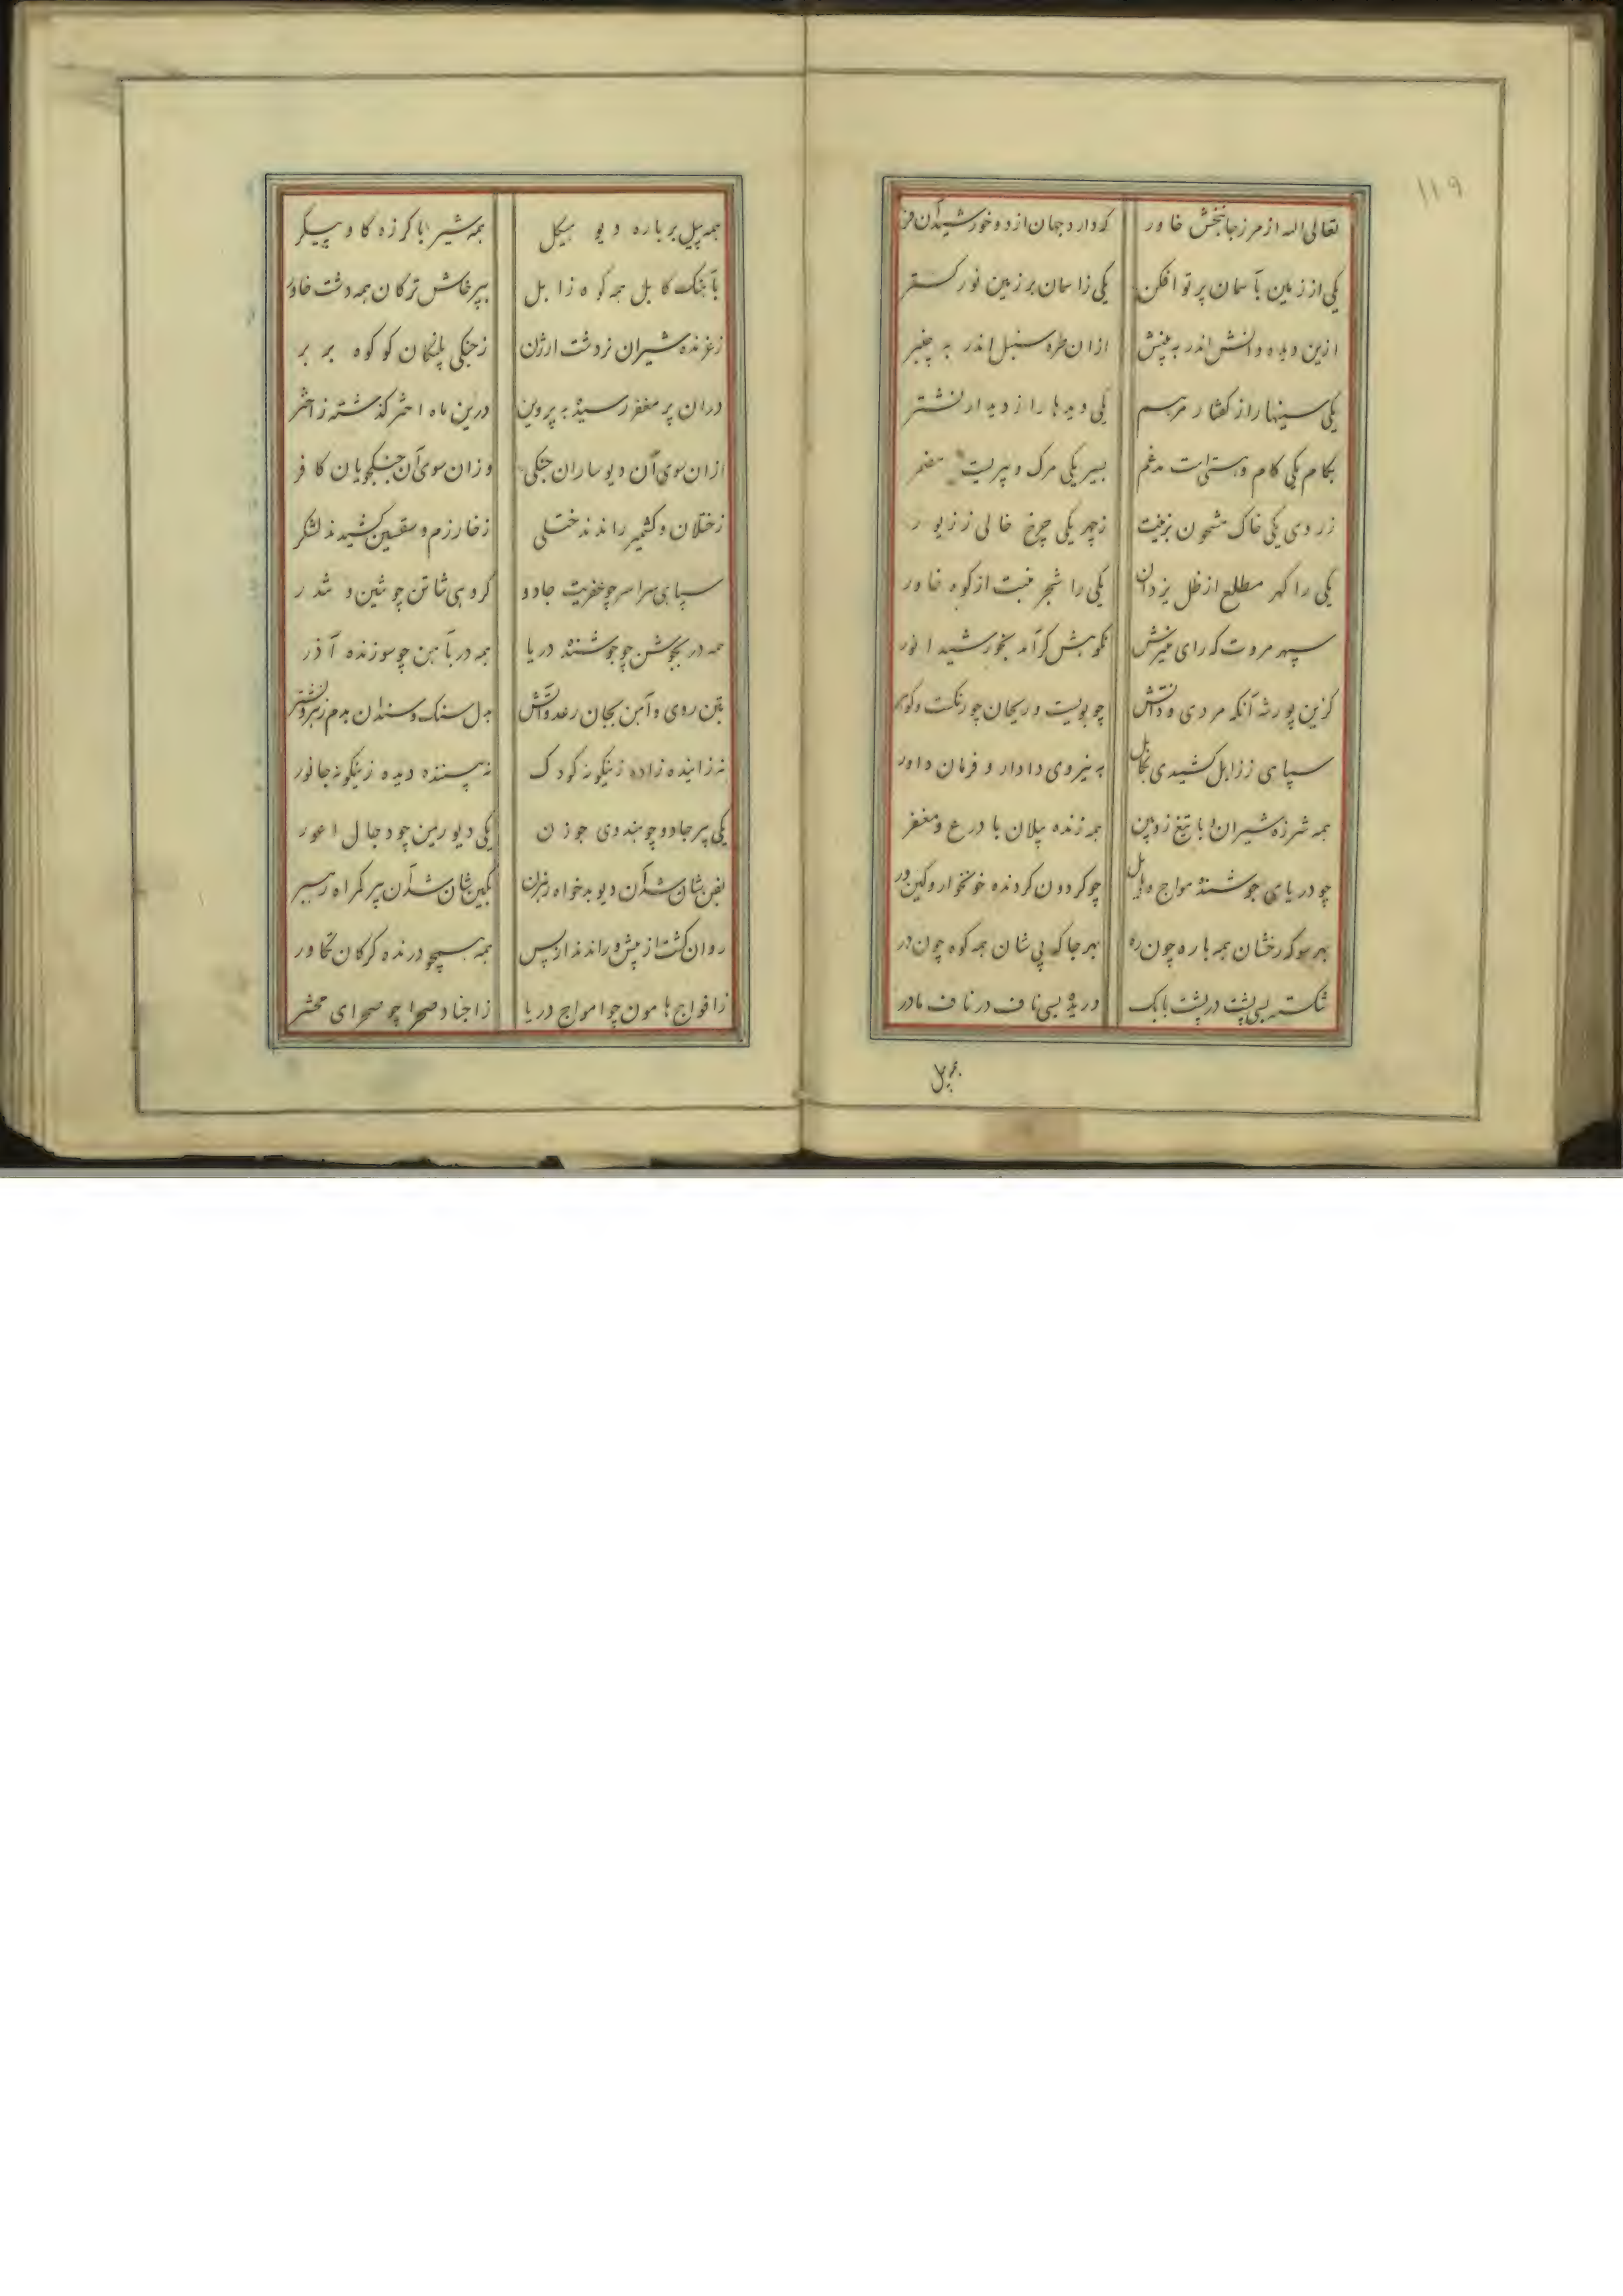 ۱۱۹
تعالی الله از مرز جانبخش خاور که دارد جهان از دو خورشید آن فر
یکی از زمین بآسمان پرتو افکن یکی زاسمان بر زمین نور کستر
ازین دیده دانش اندر به بینش ازان طره سنبل اندر به چنبر
یکی سینها را ز کفتار مرهم یکی دیدها را ز دیدار نشتر
بکام یکی کام و هستی است مدغم بسیر یکی مرک و پیریست مضمر
ز روی یکی خاک مشحون بزینت زچهر یکی چرخ خالی ز زیور
یکی را کهر مطلع از ظل یزدان یکی را شجر منبت از کوه خاور
سپهر مروت که رای منیرش نکوهش کر آمد بخورشید انور
کزین پور شه آنکه مردی و دانش چو بویست و ریحان چو رنکست و کوهر
سپاهی ز زابل کشیدی بکابل به نیروی دادار و فرمان داور
همه شرزه شیران با تیغ زوبین همه زنده پیلان با درع و مغفر
چو دریای جوشنده مواج و هایل چو کردون کردنده خونخوار و کین ور
بهر سو که رخشان همه باره چون ره بهر جا که پی شان همه کوه چون در
شکسته بسی پشت در پشت بابک دریده بسی ناف در ناف مادر
همه پیل
همه پیل بر باره دیو هیکل همه شیر با کرزه کاو پیکر
بآهنک کابل همه کوه زابل بپرخاش ترکان همه دشت خاور
زغرنده شیران نر دشت ارژن زجنکی پلنکان که کوه بربر
دران پر مغفر رسیده به پروین درین ماه اختر کذشته ز اختر
ازان سوی آن دیوساران جنکی وزان سوی آن جنکجویان کافر
زختلان و کشمیر راندند ختلی زخارزم و سقسین کشیدند لشکر
سپاهی سراسر چو عفریت جادو کروهی شان تن چو تنین و شدر
همه در بجوشن چو جوشنده دریا همه در بآهن چو سوزنده آذر
بتن روی و آهن بجان رعد و آتش بدل سنک و سندان بدم زهر و نشتر
نه زاینده زاده زینکونه کودک نه بیننده دیده زینکونه جانور
یکی پیر جادو چو هندوی جوزن یکی دیو ریمن چو دجال اعور
بفن شان شد آن دیو بدخواه رهزن بکین شان شد آن پیر کمراه رهبر
روان کشت از پیش و راندند از پس همه همچو درنده کرکان تکاور
زافواج هامون چو امواج دریا زاجناد صحرا چو صحرای محشر